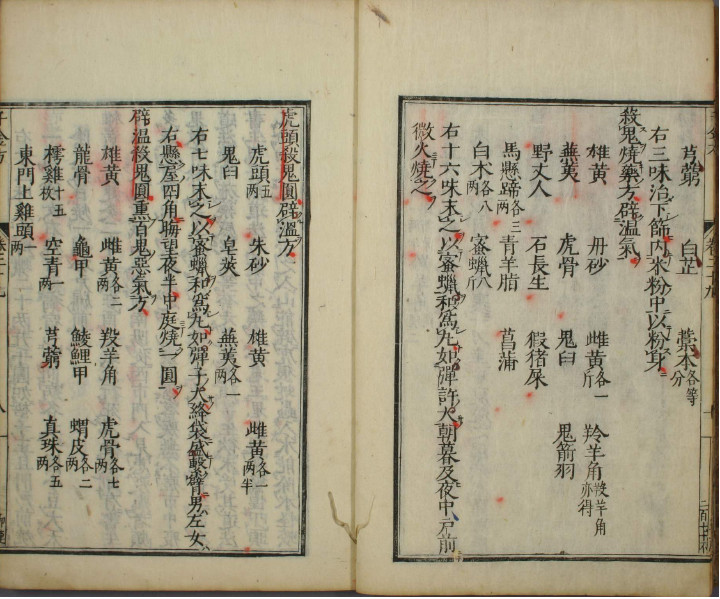 芎藭 白芷 藁本各等分
右三味治下篩内米粉中以粉身
殺鬼燒藥方辟溫氣
雄黄 丹砂 雌黄各一斤 羚羊角羖羊角亦得
蕪荑 虎骨 鬼臼 鬼箭羽
野丈人 石長生 猳猪屎
馬懸蹄各三兩 青羊脂 菖蒲
白朮各八兩 蜜蠟八斤
右十六味末之以蜜蠟和爲丸如彈許大朝暮及夜中戸前
微火燒之
虎頭殺鬼圓辟溫方
虎頭五兩 朱砂 雄黄 雌黄各一兩半
鬼臼 皂莢 蕪荑各一兩
右七味末之以蜜蠟和爲丸如彈子大絳袋盛繫臂男左女
右懸屋四角晦望夜半中庭燒一圓
辟溫殺鬼圓熏百鬼惡氣方
雄黄 雌黄各二兩 羖羊角 虎骨各七兩
龍骨 龜甲 鯪鯉甲 蝟皮各二兩
樗雞十五枚 空青一兩 芎藭 真珠各五兩
東門上雞頭一兩